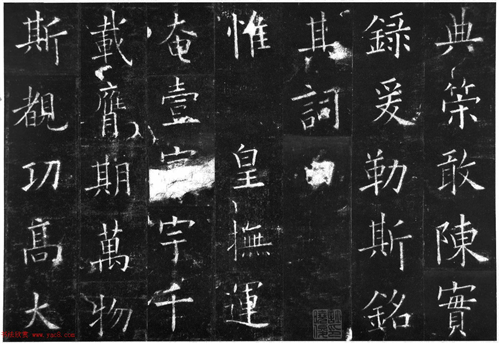 典筞敢陳實
錄爰勒斯銘
其詞曰
惟 皇撫運
奄壹宇千
載膺期萬物
斯覩功髙大